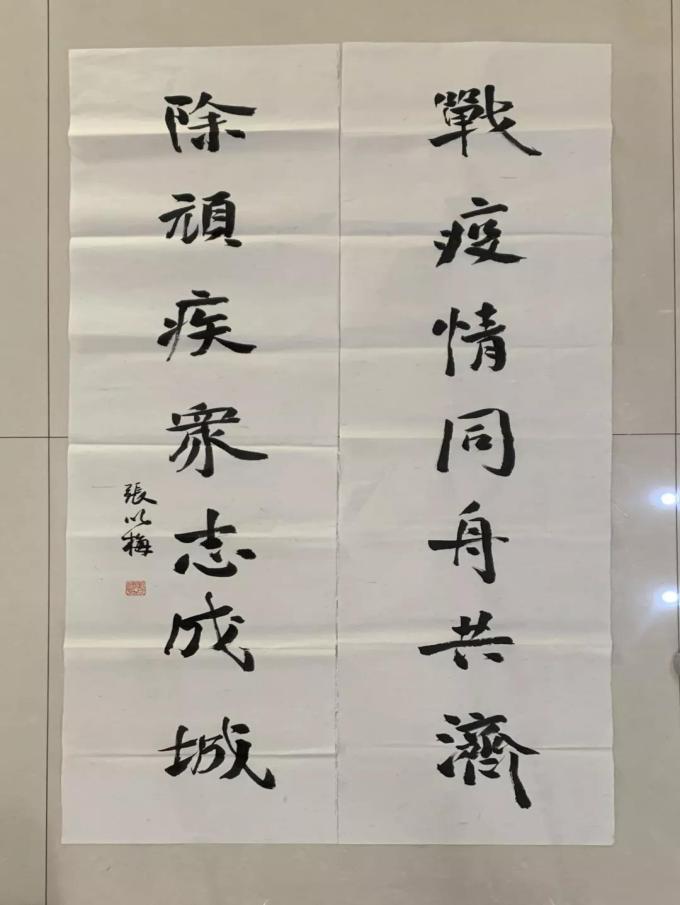 戰疫情同舟共濟
除頑疾眾志成城
張以梅